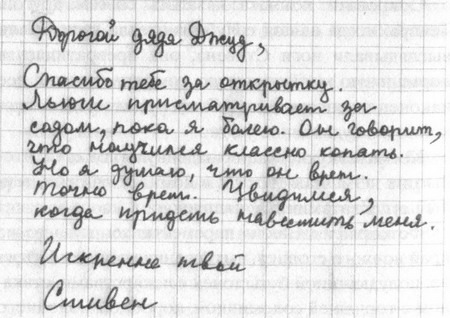 Дорогой дядя Джуд,
Спасибо тебе за открытку.
Льюис присматривает за
садом, пока я болею. Он говорит,
что научился классно копать.
Но я думаю, что он врет.
Точно врет. Увидимся,
когда придешь навестить меня.
Искренне твой
Стивен